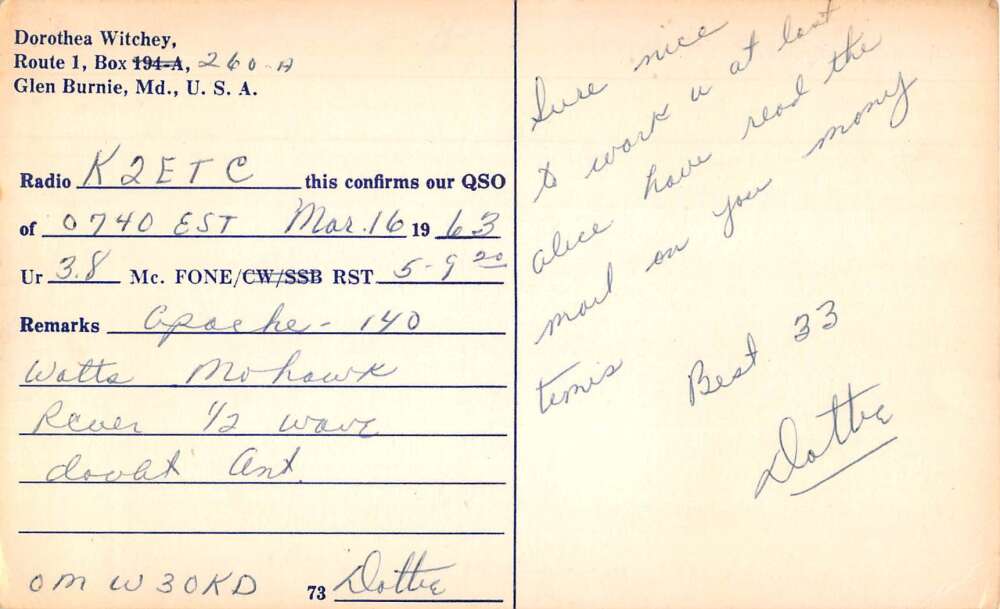 Dorothea Witchey,
Route 1, Box 194-A, 260-A
Glen Burnie, Md., U. S. A.
Radio K2ETC this confirms our QSO
of 0740 EST Mar. 16 19 63
Ur 3.8 Mc. FONE/CW/SSB RST 5-9 20
Remarks Apache - 140
Watts Mohawk
Rcver 1/2 wave
doublt Ant.
OM W3OKD 73 Dottie
Sure nice
to work u at last
alice have read the
mail on you mony
times
Best 33
Dottie